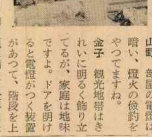 山野　部屋の電燈
暗い、燈火の倹約を
やつてますね。
金子　観光地帯はき
れいに明るく飾り立
てるが、家庭は地味
ですよ。ドアを明け
ると電燈がつく装置
があつて、階段を上